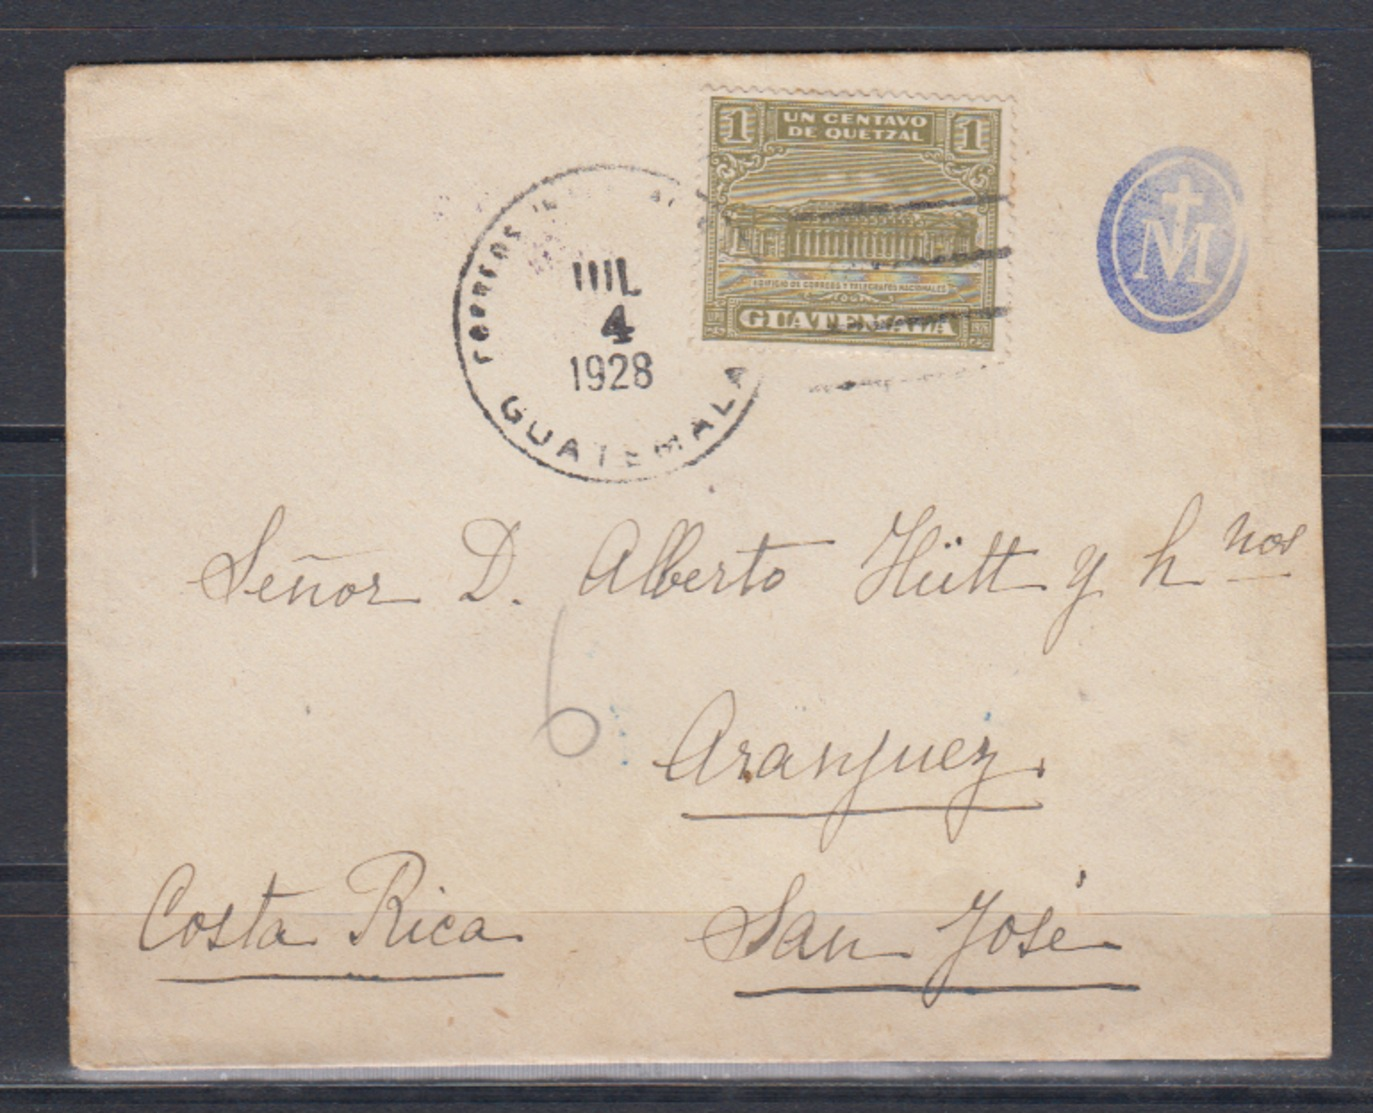 1 UN CENTAVO 1
DE QUETZAL
EDIFICIO DE CORREOS Y TELEGRAFOS NACIONALES
GUATEMALA
CORREOS
JUL
4
1928
GUATEMALA
M
Señor D. Alberto Hütt y hnos
6
Aranjuez.
Costa Rica
San José